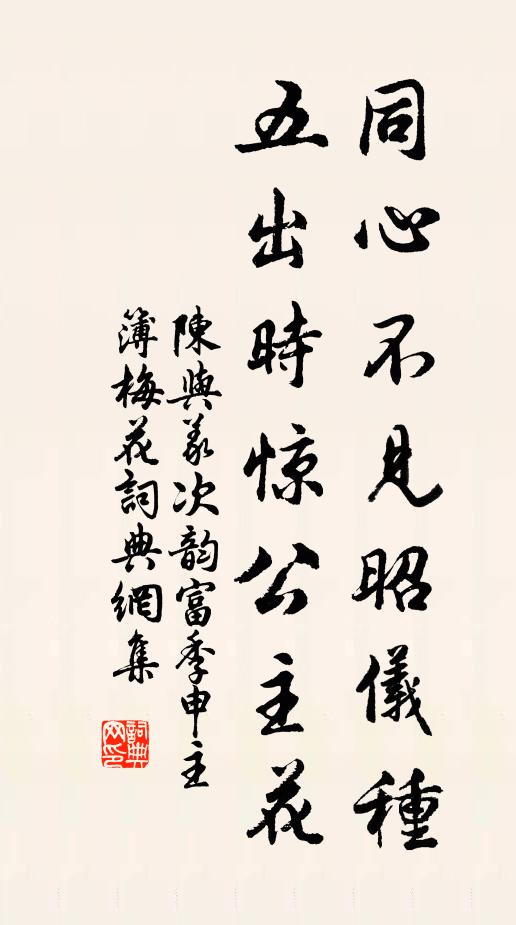 同心不見昭儀種
五出時惊公主花
陳與義次韵富季申主
簿梅花詞典網集
詞典网印